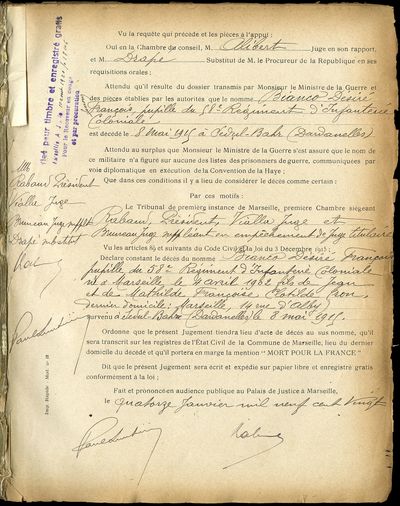 Vu la requête qui précède et les pièces à l'appui :
Ouï en la Chambre du conseil, M. Alibert Juge en son rapport,
et M. Drapé Substitut de M. le Procureur de la République en ses
requisitions orales :
Attendu qu'il résulte du dossier transmis par Monsieur le Ministre de la Guerre et
des pièces établies par les autorités que le nomme Bianco Désiré
François, pupille du 58e Régiment d'Infanterie
Coloniale
est décédé le 8 Mai 1915 à Cedyl-Bahr (Dardanelles)
Attendu au surplus que Monsieur le Ministre de la Guerre s'est assuré que le nom de
ce militaire n'a figuré sur aucunes des listes des prisonniers de guerre, communiquées par
voie diplomatique en exécution de la Convention de la Haye ;
Que dans ces conditions il y a lieu de considérer le décès comme certain :
Par ces motifs :
Le Tribunal de première instance de Marseille, première Chambre siégeant
Rabaud, Président, Vialla Juge et
Juge suppléant en empêchement de Juge titulaire
Vu les articles 89 et suivants du Code Civil et la loi du 3 Décembre 1915 ;
Déclare constant le décès du nommé Bianco Désiré François
pupille du 58e Régiment d'Infanterie Coloniale
né à Marseille, le 4 avril 1902 fils de Jean
et de Mathilde Françoise Clotilde
dernier domicilié Marseille, 14 rue
survenu à Cedul-Bahr (Dardanelles) le 8 mai 1915.
Ordonne que le présent Jugement tiendra lieu d'acte de décès au sus nommé, qu'il
sera transcrit sur les registres de l'État Civil de la Commune de Marseille, lieu du dernier
domicile du décédé et qu'il portera en marge la mention "MORT POUR LA FRANCE"
Dit que le présent Jugement sera écrit et expédié sur papier libre et enregistré gratis
conformément à la loi ;
Fait et prononcé en audience publique au Palais de Justice à Marseille,
le quatorze Janvier mil neuf cent vingt
Visé pour timbre et enregistré gratis
Pour le Receveur en congé
et par procuration
MM
Rabaud, Président
Vialla Juge
Juge suppléant
Drapé substitut